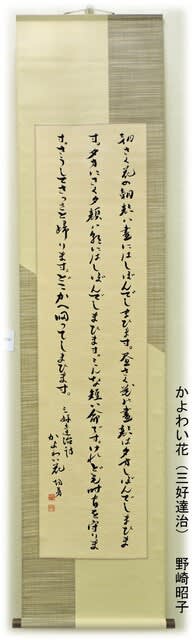 朝さく花の朝顔は昼にはしぼんでしまひます。昼さく花の昼顔は夕方しぼんでしまひま
す。夕方にさく夕顔は朝にはしぼんでしまひます。みんな短い命です。けれども時間を守りま
す。さうしてさっさと帰ります。どこかへ帰ってしまひます。
三好達治詩
かよわい花
かよわい花(三好達治) 野崎昭子